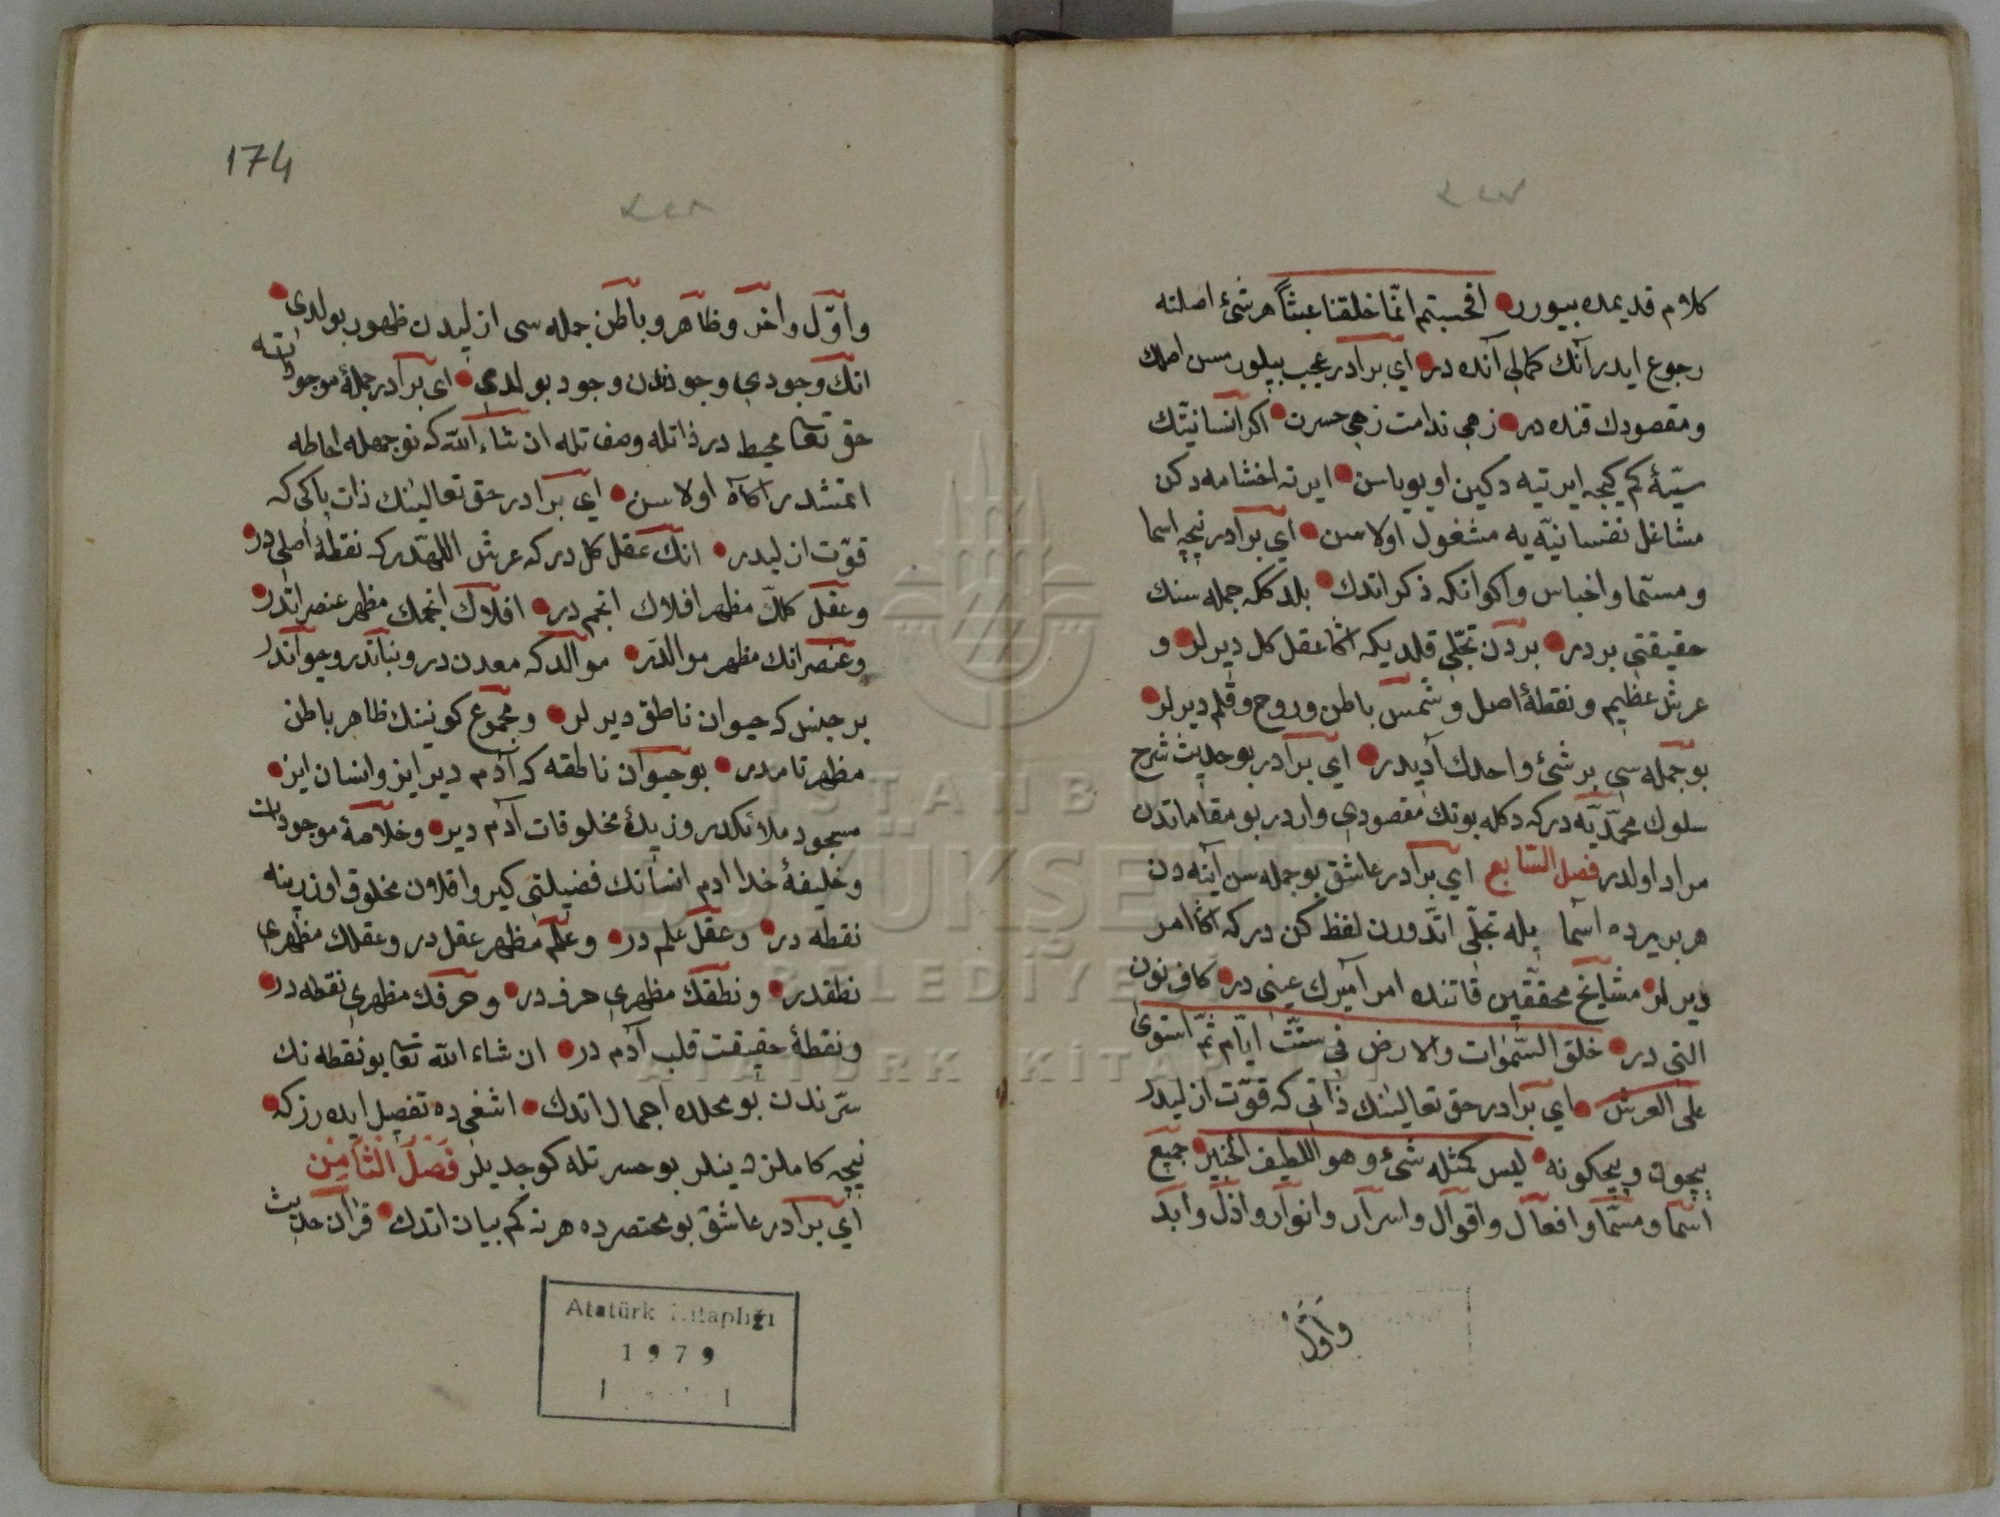 كلام قديمده بيورر افحسبتم انّما خلقنا عبثاً هر شئ اصلنه
رجوع ايدر آنك كمالى آنده در اي برادر عجب بيلورمسن اصلك
ومقصودك قنده در زهى ندامت زهى حسرت اكر انسانيّتك
سيّئه كم كيجه ايرتيه دكين اويوياسن ايرته اخشامه دكن
مشاغل نفسانيّه يه مشغول اولاسن اي برادر نيچه اسما
ومسمّا واخباس واكوانكه ذكر اتدك بلد كلكه جمله سنك
حقيقتى بردر بردن تجلّى قلديكه اكا عقل كل ديرلر و
عرش عظيم ونقطۀ اصل وشمس باطن وروح وقلم ديرلر
بو جمله سى بر شئ واحدك آديدر اي برادر بو حديث شرح
سلوك محمّديّه در كه دكله بونك مقصودى واردر بو مقاماتدن
مراد اولدر فصل السّابع اي برادر عاشق بو جمله سن آينه دن
هر بريرده اسما يله تجلّى اتدورن لفظ كن در كه اكا امر
ديرلر مشايخ محقّقين قاتنده امر آميرك عينى در كاف نون
التى در خلق السّموات والارض فى ستّت ايّام ثمّ استوى
على العرش اي برادر حق تعالينك ذاتى كه قوّت ازليدر
بيچون وبيچكونه ليس كمثله شئ وهو اللّطيف الخبير جميع
اسما ومسمّا وافعال واقوال واسرار وانوار وازل وابد
واوّل
174
واوّل واخر وظاهر وباطن جمله سى ازليدن ظهور بولدى
انك وجودى وجودندن وجود بولدى اي برادر جملۀ موجوداته
حق تعا محيط در ذاتله وصفاتله ان شاء الله كه نو جهله احاطه
اتمشدر اكاه اولاسن اي برادر حق تعالينك ذات پاكى كه
قوّت ازليدر انك عقل كل در كه عرش اللهدر كه نقطۀ اصلى در
وعقل كلّك مظهر افلاك انجم در افلاك انجمك مظهر عنصراتدر
وعنصراتك مظهر موالدر موالد كه معدن در ونباتدر وحيواندر
بر جنس كه حيوان ناطق ديرلر ومجموع كونينك ظاهر باطن
مظهر تامدر بو حيوان ناطقه كه آدم ديرايز وانسان ايز
مسجود ملائكدر وزبدۀ مخلوقات آدم دير وخلاصۀ موجودات
وخليفۀ خدا ادم انسانك فضيلتى كير واقلان مخلوق اوزرينه
نقطه در وعقل علم در وعلم مظهر عقل در وعقلك مظهرى
نطقدر ونطقك مظهرى حرف در وحرفك مظهرى نقطه در
ونقطۀ حقيقت قلب آدم در ان شاء الله تعا بو نقطه نك
سرّندن بو محلده اجمال اتدك اشغى ده تفصيل ايده رز كه
نيچه كاملن دينلر بو حسرتله كوجديلر فصل الثامن
اي برادر عاشق بو مختصرده هر نه كم بيان اتدك قرآن حديث
Atatürk Kitaplığı
1979
İSTANBUL
BÜYÜKŞEHİR
BELEDİYESİ
ATATÜRK KİTAPLIĞI